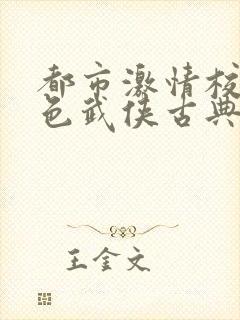 都市激情校
色武侠古典
王金文